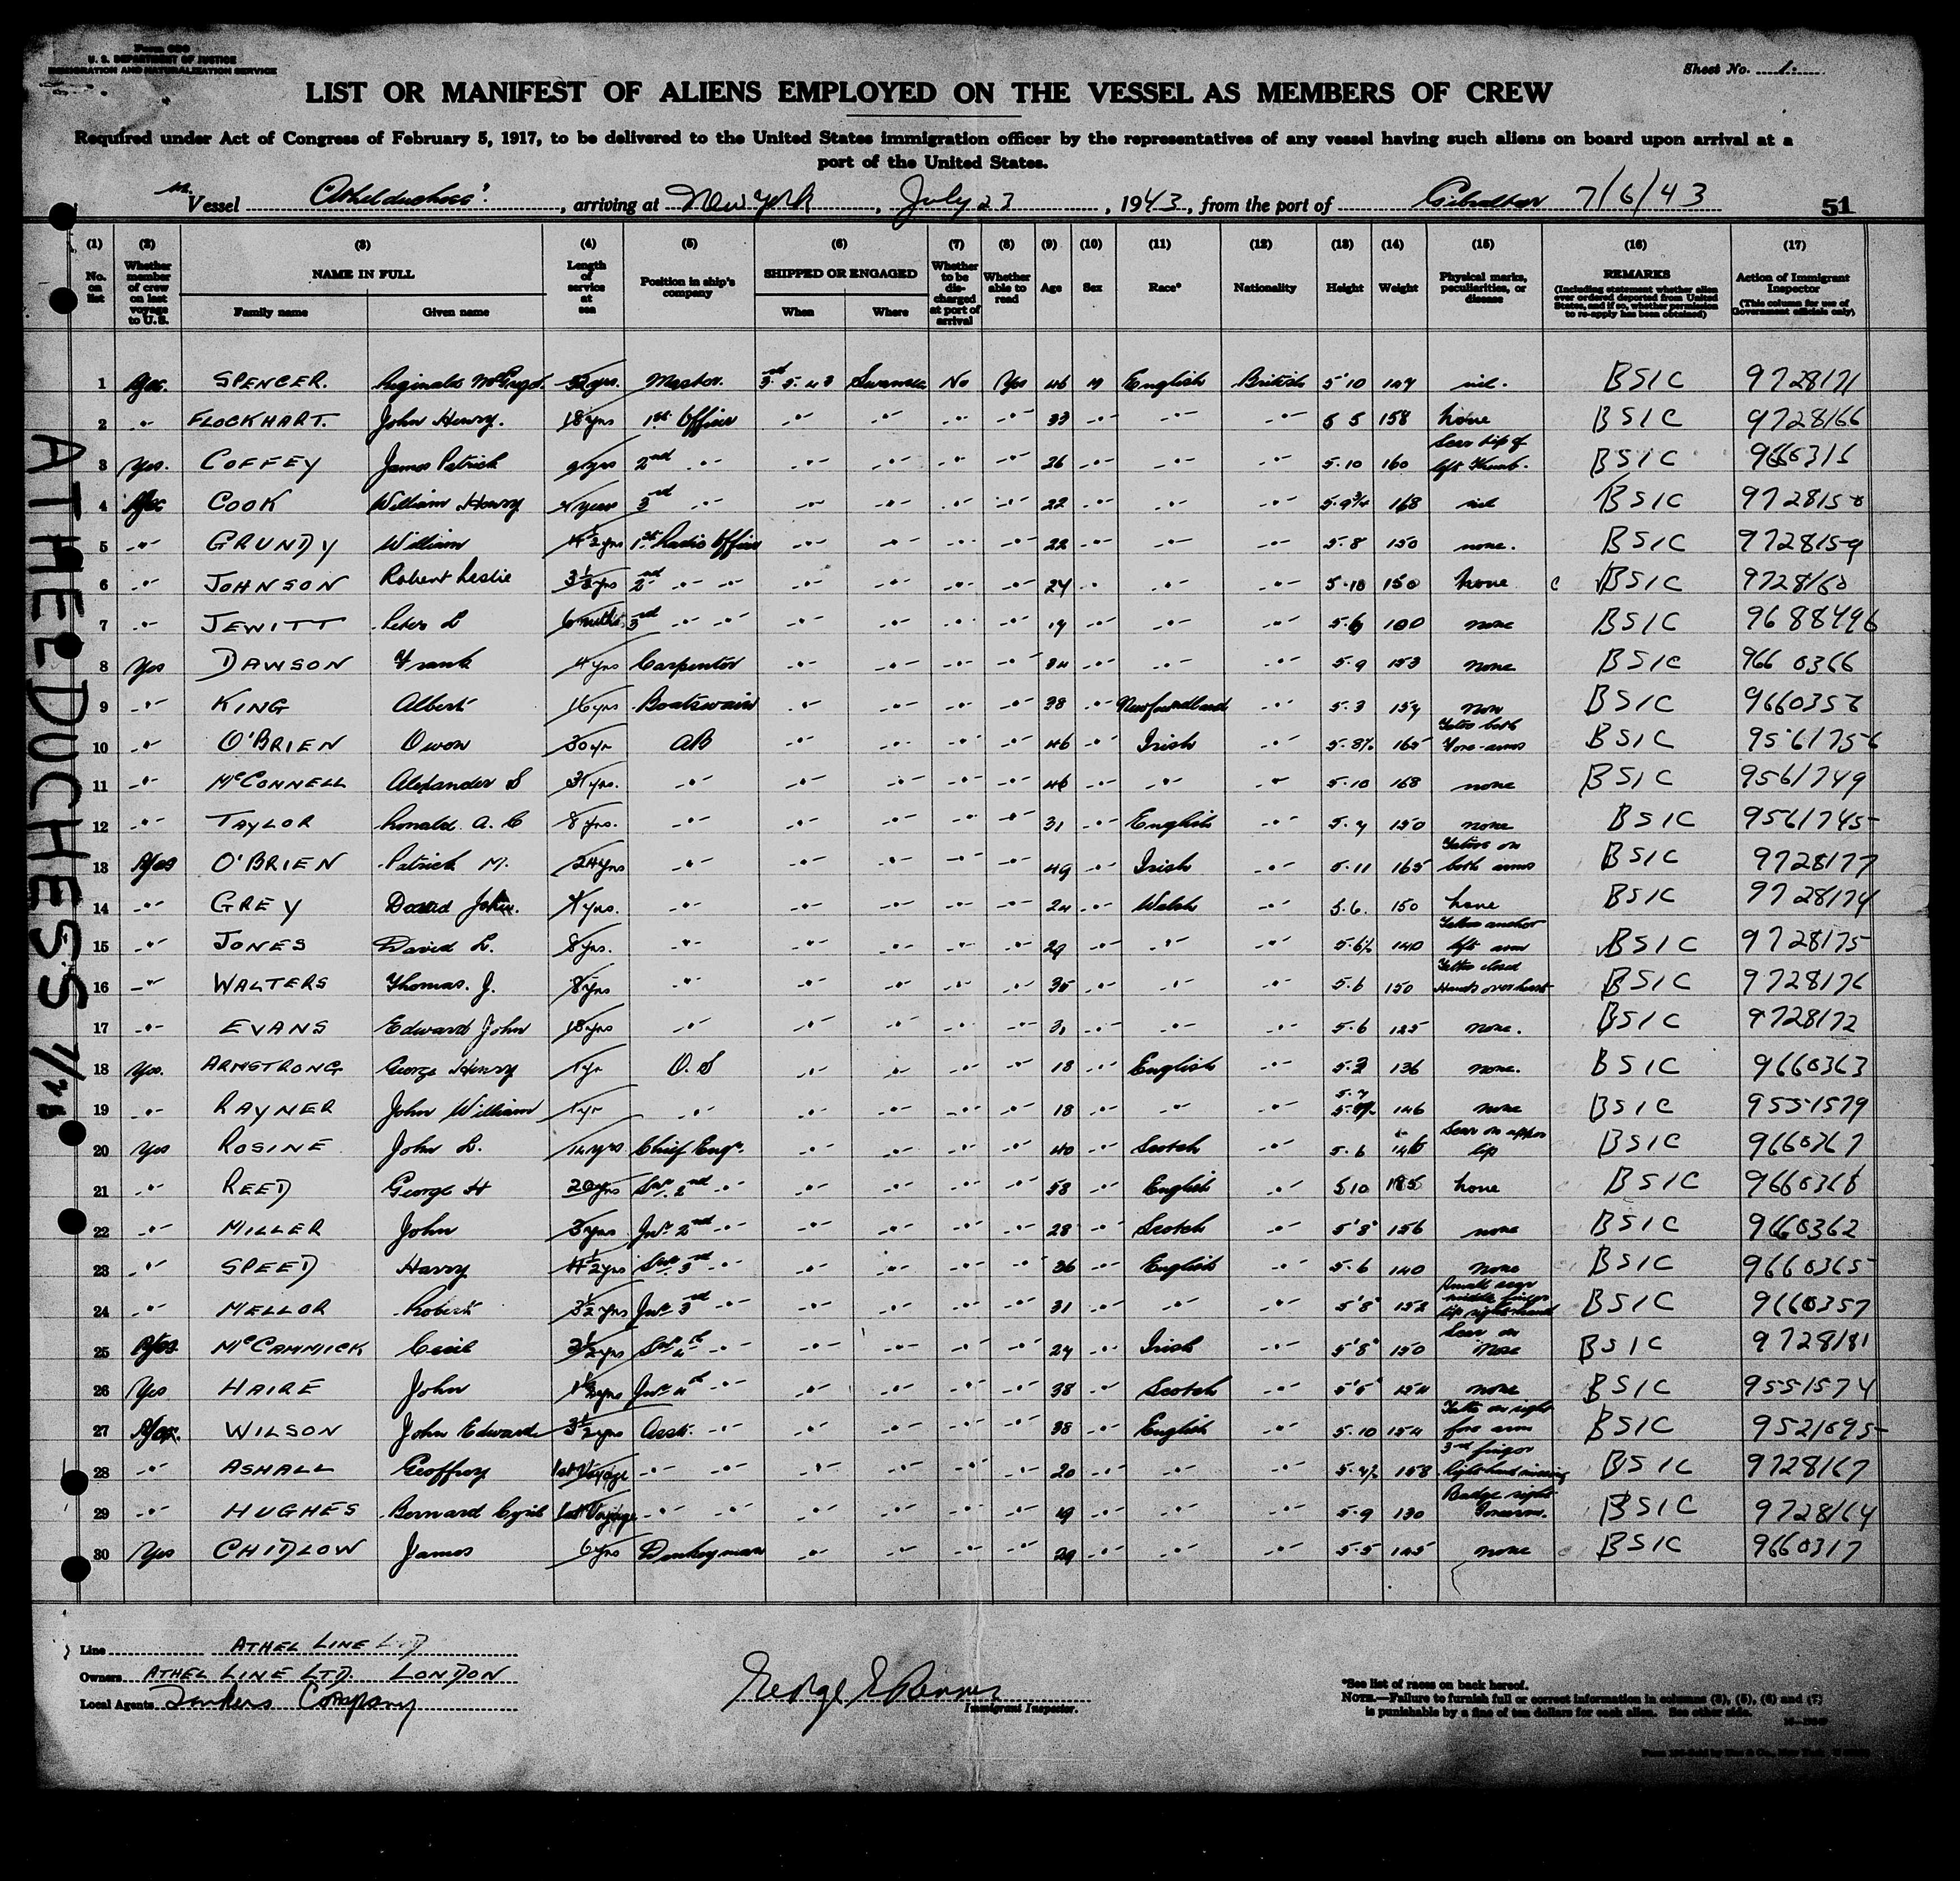 Form 680
U. S. DEPARTMENT OF JUSTICE
IMMIGRATION AND NATURALIZATION SERVICE
Sheet No. 1.
LIST OR MANIFEST OF ALIENS EMPLOYED ON THE VESSEL AS MEMBERS OF CREW
Required under Act of Congress of February 5, 1917, to be delivered to the United States immigration officer by the representatives of any vessel having such aliens on board upon arrival at a
port of the United States.
Vessel Athelduchess, arriving at New York, July 23, 1943, from the port of Gibraltar 7/6/43
51
(1) (2) (3) (4) (5) (6) (7) (8) (9) (10) (11) (12) (13) (14) (15) (16) (17)
No. on list
Whether member of crew on last voyage to U.S.
NAME IN FULL
Family name
Given name
Length of service at sea
Position in ship's company
SHIPPED OR ENGAGED
When
Where
Whether to be discharged at port of arrival
Whether able to read
Age
Sex
Race*
Nationality
Height
Weight
Physical marks, peculiarities, or disease
REMARKS
(Including statement whether alien ever ordered deported from United States, and if so, whether permission to re-apply has been obtained)
Action of Immigrant Inspector
(This column for use of Government officials only)
1 SPENCER. Reginald Master. Swansea No Yes 46 M English British 5'10 nil. BSIC 9728171
2 -"- FLOCKHART. John Henry. 18 yrs 1st Officer -"- -"- -"- -"- 33 -"- -"- 5 5 158 none BSIC 9728166
3 Yes. COFFEY James Patrick 2nd -"- -"- -"- -"- -"- 26 -"- -"- -"- 5.10 160 Scar tip of left thumb. BSIC
4 COOK William Henry 3rd -"- -"- -"- -"- -"- 22 -"- -"- -"- 5.9¾ 168 nil BSIC
5 -"- GRUNDY William 1st Radio Officer -"- -"- -"- -"- 22 -"- -"- -"- 5.8 150 none. BSIC 9728159
6 -"- JOHNSON Robert Leslie 3½ yrs 2nd -"- -"- -"- -"- -"- -"- 24 -"- -"- -"- 5.10 150 none BSIC 9728160
7 -"- JEWITT Peter 6 mths 3rd -"- -"- -"- -"- -"- -"- 19 -"- -"- -"- none BSIC 9688496
8 Yes DAWSON Frank 4 yrs Carpenter -"- -"- -"- -"- -"- -"- -"- 5.9 153 none BSIC 9660366
9 -"- KING Albert 16 yrs Boatswain -"- -"- -"- -"- 38 -"- Newfoundland -"- 5.3 BSIC
10 -"- O'BRIEN Owen 30 yr AB -"- -"- -"- -"- 46 -"- Irish -"- 5.8½ 165 Tatto both Fore-arms BSIC 9561756
11 -"- McCONNELL Alexander S 31 yrs. -"- -"- -"- -"- -"- 46 -"- -"- -"- 5.10 168 none BSIC 9561749
12 -"- TAYLOR Ronald. A. 8 yrs. -"- -"- -"- -"- -"- 31 -"- English -"- 150 none BSIC 9561745
13 O'BRIEN Patrick M. 24 yrs -"- -"- -"- -"- -"- 49 -"- Irish -"- 5.11 165 both arms BSIC 9728177
14 -"- GREY David John. -"- -"- -"- -"- -"- 24 -"- Welsh -"- 5.6. 150 none BSIC 9728174
15 -"- JONES David L. 8 yrs. -"- -"- -"- -"- -"- 29 -"- -"- -"- 5.6½ 140 Tattoo anchor left arm BSIC 9728175
16 -"- WALTERS Thomas. J. 8 yrs -"- -"- -"- -"- -"- 35 -"- -"- -"- 5.6 150 BSIC 9728176
17 -"- EVANS Edward John 18 yrs -"- -"- -"- -"- -"- -"- -"- -"- 5.6 none. BSIC 9728172
18 Yes. ARMSTRONG George Henry 1 yr O. S -"- -"- -"- -"- 18 -"- English -"- 136 none. BSIC 9660363
19 -"- RAYNER John William 1 yr -"- -"- -"- -"- -"- 18 -"- -"- -"- 146 none BSIC 9551579
20 Yes ROSINE John L. Chief Engr. -"- -"- -"- -"- 40 -"- Scotch -"- 5.6 Scar on upper lip BSIC 9660367
21 -"- REED George H 20 yrs Snr. 2nd -"- -"- -"- -"- -"- -"- English -"- 5 10 none BSIC
22 -"- MILLER John Jnr. 2nd -"- -"- -"- -"- -"- 28 -"- Scotch -"- 5'8" 156 none BSIC 9660362
23 -"- SPEED Harry Snr. 3rd -"- -"- -"- -"- -"- 36 -"- English -"- 5.6 140 none BSIC 9660365
24 -"- MELLOR Robert 3½ yrs Jnr. 3rd -"- -"- -"- -"- -"- 31 -"- -"- -"- 5'8" 152 Small scar middle finger BSIC 9660357
25 McCAMMICK Cecil 2½ yrs Snr 4th -"- -"- -"- -"- -"- 24 -"- Irish -"- 5'8" 150 Scar on nose BSIC 9728181
26 Yes HAIRE John Jnr. 4th -"- -"- -"- -"- -"- 38 -"- Scotch -"- 5'5" 154 none BSIC 9551574
27 WILSON John Edward 3½ yrs Asst. -"- -"- -"- -"- -"- 38 -"- English -"- 5.10 154 Tatto on right fore arm BSIC 9521695
28 -"- ASHALL Geoffrey 1st Voyage -"- -"- -"- -"- -"- -"- 20 -"- -"- -"- 158 3rd finger right hand missing BSIC 9728167
29 -"- HUGHES Bernard Cyril 1st Voyage -"- -"- -"- -"- -"- -"- 19 -"- -"- -"- 5.9 130 Badge right forearm. BSIC 9728164
30 Yes CHIDLOW James 6 yrs Donkeyman -"- -"- -"- -"- 29 -"- -"- -"- 5.5 145 none BSIC 9660317
ATHELDUCHESS 7/23
Line ATHEL LINE LTD
Owners ATHEL LINE LTD. LONDON
Local Agents Tankers Company
George
Immigrant Inspector.
*See list of races on back hereof.
NOTE.—Failure to furnish full or correct information in columns (3), (5), (6) and (7)
is punishable by a fine of ten dollars for each alien. See other side.